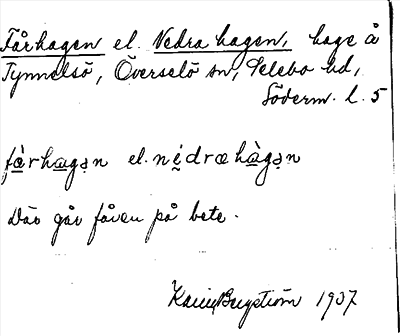 Fårhagen el. Vedra hagen, hage å
Tynnelsö, Överselö sn, Selebo hd,
Söderm. l. 5
fårhagən el. nédræhàgən
Där går fåren på bete.
Karin Bergström 1937